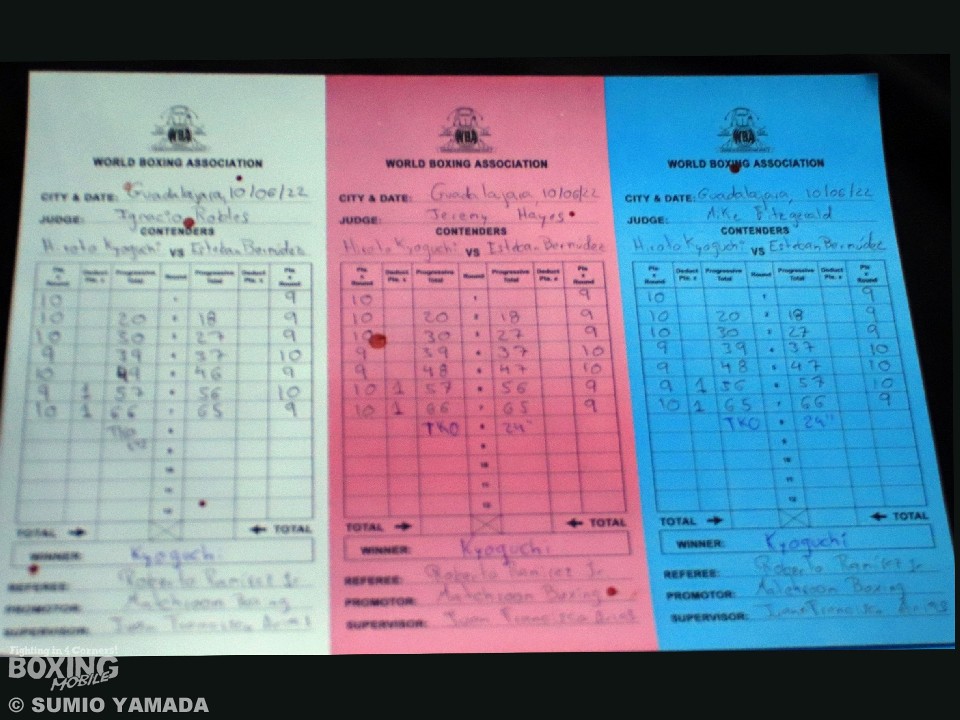 WBA
WORLD BOXING ASSOCIATION
CITY & DATE: Guadalajara, 10/06/22
JUDGE: Ignacio Robles
CONTENDERS
Hiroto Kyoguchi VS Esteban Bermudez
Pts x Round Deduct Pts. x Progressive Total Round Progressive Total Deduct Pts. x Pts x Round
10 9
10 20 18 9
10 30 27 9
9 39 37 10
10 49 46 9
9 1 57 56 10
10 1 66 65 9
TKO
10
11
12
TOTAL TOTAL
WINNER: Kyoguchi
REFEREE: Roberto Ramirez Jr
PROMOTOR: Matchroom Boxing
SUPERVISOR: Juan Francisco Arias
WBA
WORLD BOXING ASSOCIATION
CITY & DATE: Guadalajara, 10/06/22
JUDGE: Jeremy Hayes
CONTENDERS
Hiroto Kyoguchi VS Esteban Bermudez
Pts x Round Deduct Pts. x Progressive Total Round Progressive Total Deduct Pts. x Pts x Round
10 9
10 20 18 9
10 30 27 9
9 39 37 10
9 48 47 10
10 1 57 56 9
10 1 66 65 9
TKO 24"
10
11
12
TOTAL TOTAL
WINNER: Kyoguchi
REFEREE: Roberto Ramirez Jr
PROMOTOR: Matchroom Boxing
SUPERVISOR: Juan Francisco Arias
WBA
WORLD BOXING ASSOCIATION
CITY & DATE: Guadalajara, 10/06/22
JUDGE: Mike Fitzgerald
CONTENDERS
Hiroto Kyoguchi VS Esteban Bermudez
Pts x Round Deduct Pts. x Progressive Total Round Progressive Total Deduct Pts. x Pts x Round
10 9
10 20 18 9
10 30 27 9
9 39 37 10
9 48 47 10
9 1 56 57 10
10 1 65 66 9
TKO 24"
10
11
12
TOTAL TOTAL
WINNER: Kyoguchi
REFEREE: Roberto Ramirez Jr
PROMOTOR: Matchroom Boxing
SUPERVISOR: Juan Francisco Arias
Fighting in 4 Corners!
BOXING
MOBILE
© SUMIO YAMADA